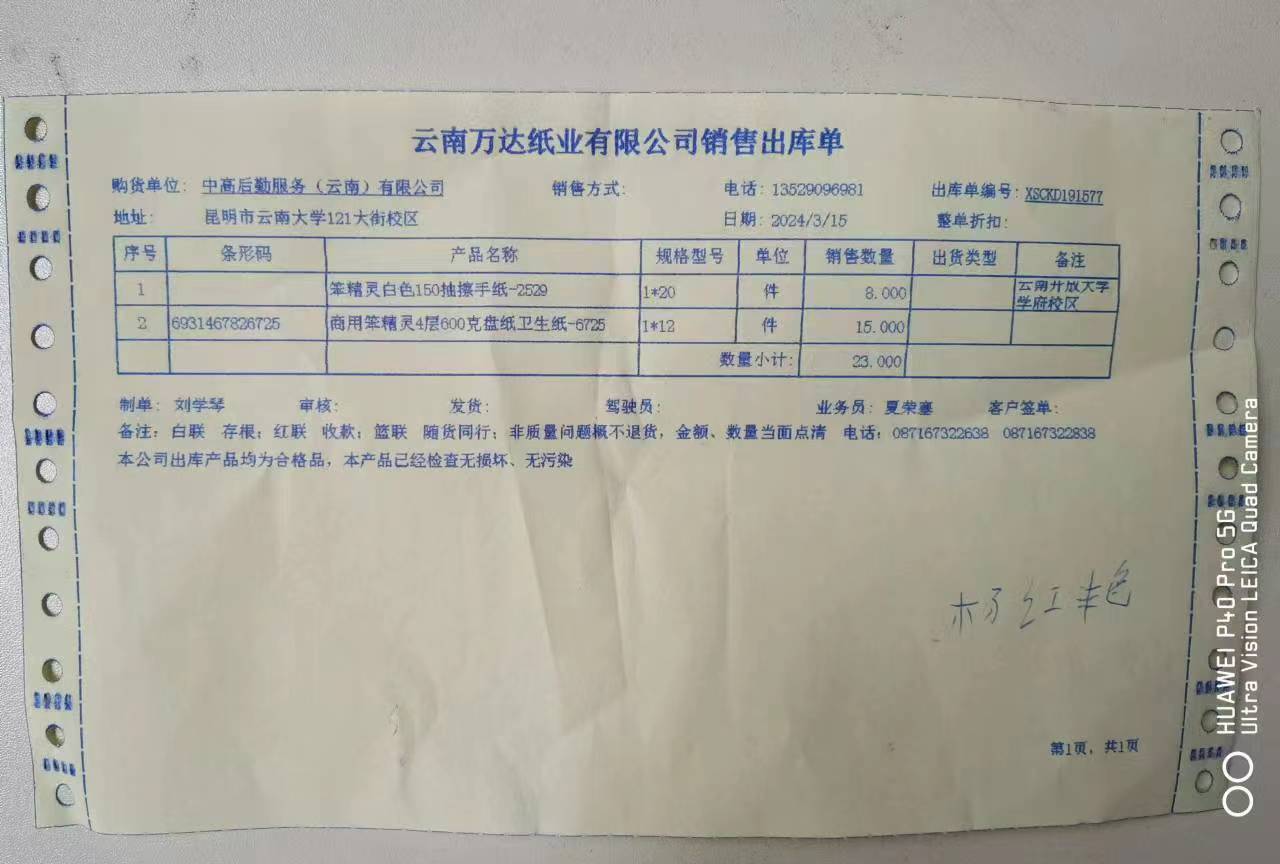 云南万达纸业有限公司销售出库单
购货单位: 中高后勤服务（云南）有限公司 销售方式: 电话: 13529096981 出库单编号: XSCKD191577
地址: 昆明市云南大学121大街校区 日期: 2024/3/15 整单折扣:
序号 条形码 产品名称 规格型号 单位 销售数量 出货类型 备注
1 笨精灵白色150抽擦手纸-2529 1*20 件 8.000 云南开放大学
学府校区
2 6931467826725 商用笨精灵4层600克盘纸卫生纸-6725 1*12 件 15.000
数量小计: 23.000
制单: 刘学琴 审核: 发货: 驾驶员: 业务员: 夏荣 客户签单:
备注: 白联 存根; 红联 收款; 篮联 随货同行; 非质量问题概不退货, 金额、数量当面点清 电话: 087167322638 087167322838
本公司出库产品均为合格品, 本产品已经检查无损坏、无污染
杨红艳
第1页, 共1页
HUAWEI P40 Pro 5G
Ultra Vision LEICA Quad Camera